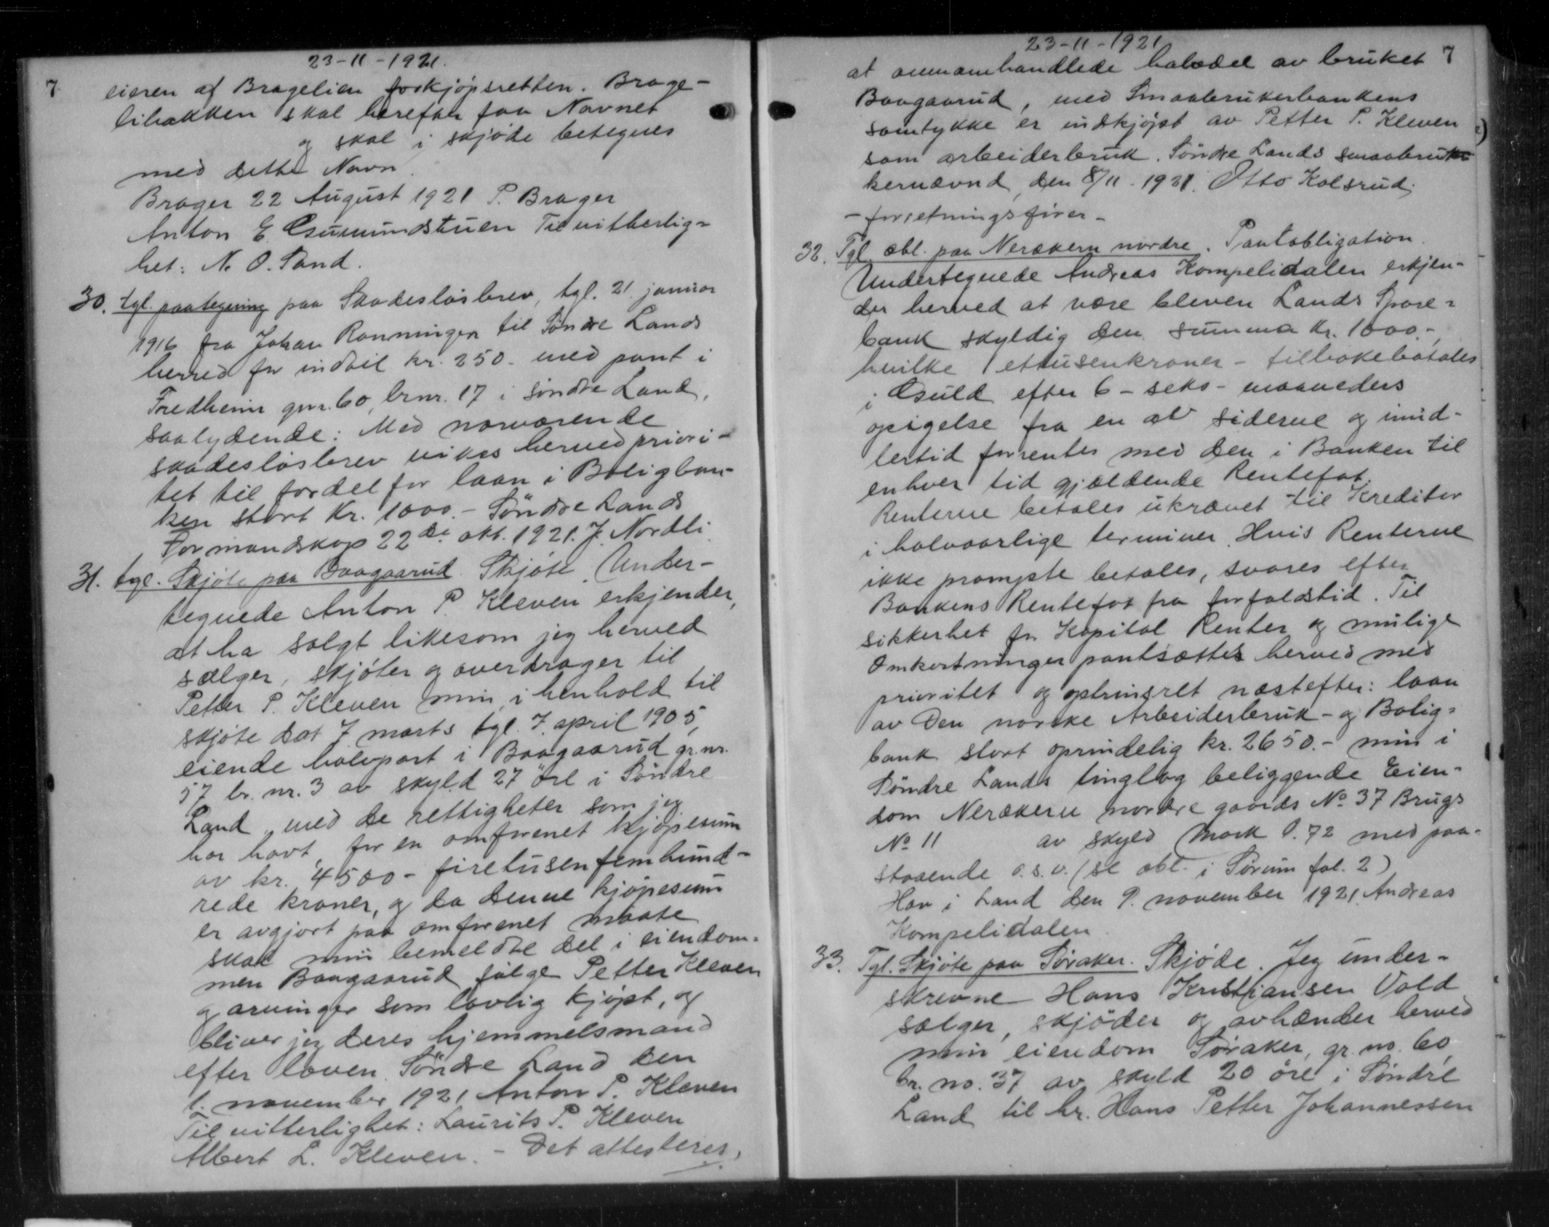 23-11-1921.
7
eieren af Bragelien forkjøpsretten. Brage-
libakken skal herefter faa Navnet
og skal i skjøde betegnes
med dette Navn.
Brager 22 August 1921 P. Brager
Anton E. Gsumundstuen Til vitherlig-
het: N. O. Sand.
30. tgl. paategning paa Skadesløsbrev, tgl. 21 januar
1916 fra Johan Ronningen til Søndre Lands
herred for indtil kr. 250.- med pant i
Fredheim gnr. 60, brnr. 17 i Søndre Land,
saalydende: Med nærværende
skadesløsbrev vikes herved priori-
tet til fordel for laan i Boligban-
ken stort Kr. 1000.- Söndre Lands
Formandskap 22de okt. 1921. J. Nordli.
31. tgl. Skjöte paa Baagaarud. Skjöte. Under-
tegnede Anton P. Kleven erkjender,
at ha solgt likesom jeg herved
sælger, skjöter og overdrager til
Petter P. Kleven min, i henhold til
skjöte dat 7. marts tgl. 7. april 1905,
eiende halvpart i Baagaarud gr. nr.
57 br. nr. 3 av skyld 27 øre i Söndre
Land, med de rettigheter som jeg
har havt, for en omforenet kjöpesum
av kr. 4500 - firetusenfemhund-
rede kroner, og da denne kjöpesum
er avgjort paa omforenet maate
skal min bemeldte del i eiendom-
men Baagaarud følge Petter Kleven
og arvinger som lovlig kjöpt, og
bliver jeg deres hjemmelsmand
efter loven. Söndre Land den
1. november 1921 Anton P. Kleven
Til vitterlighet: Laurits P. Kleven
Albert L. Kleven. - Det attesteres,
23-11-1921
7
at omhandlede halvdel av bruket
Baagaarud, med Smaabrukerbankens
samtykke er indkjöpt av Petter P. Kleven
som arbeiderbruk. Söndre Lands smaabru-
kernævnd, den 8/11-1921. Otto Kolsrud.
- forretningsfører -
32. Tgl. obl. paa Nerakern nordre. Pantobligation.
Undertegnede Andreas Kompelidalen erkjen-
der herved at være bleven Lands Spare-
bank skyldig den summa Kr. 1000.-,
hvilke 1 ettusenkroner - tilbakebetales
i Guld efter 6 - seks - maaneders
opsigelse fra en av siderne og imid-
lertid forrentes med den i Banken til
enhver tid gjældende Rentefot.
Renterne betales ukrævet til Kreditor
i halvaarlige terminer. Hvis Renterne
ikke prompte betales, svares efter
Bankens Rentefot fra forfaldstid. Til
sikkerhet for Kapital Renter og mulige
Omkostninger pantsættes herved med
prioritet og optrinsret næstefter: laan
av Den norske Arbeiderbruk- og Bolig-
bank stort oprindelig kr. 2650.- min i
Söndre Lands tinglag beliggende Eien-
dom Nerakern nordre gaards No 37 Brugs
No 11 av skyld Mark 0.72 med paa-
staaende o.s.v. (se obl. i Sörum fol. 2)
Hov i Land den 9. november 1921 Andreas
Kompelidalen.
33. Tgl. Skjöte paa Söraker. Skjöde. Jeg under-
skrevne Hans Kristiansen Vold
sælger, skjöder og avhænder herved
min eiendom Söraker, gr. no. 60,
br. no. 37 av skyld 20 öre i Söndre
Land til hr. Hans Petter Johannessen